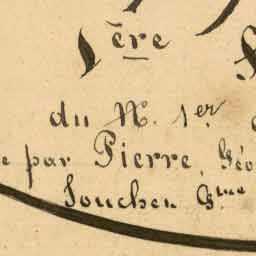 1ère
du N. 1er
par Pierre, Géo
Souchen